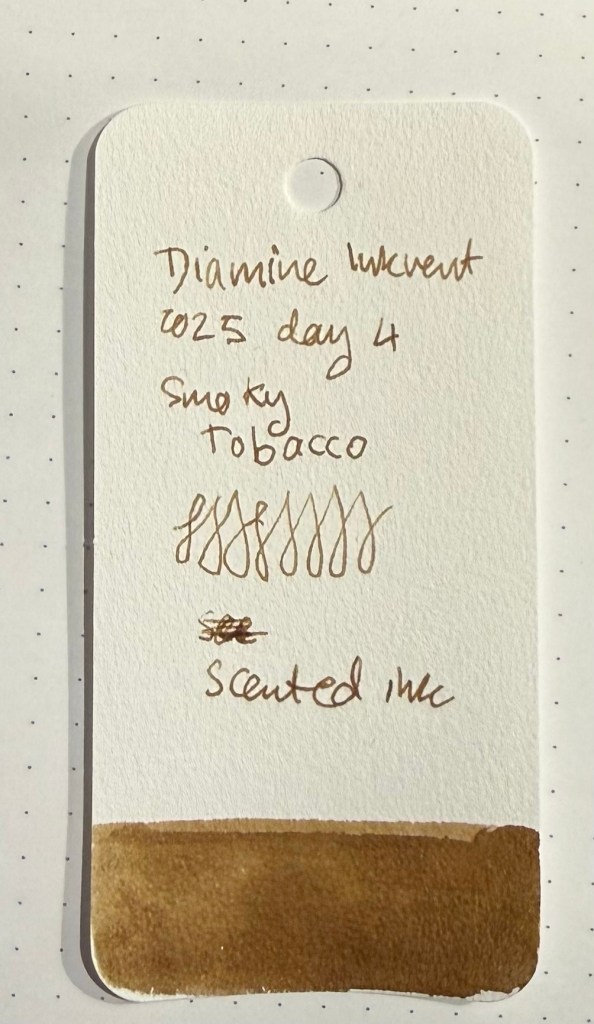 Diamine Inkvent
2025 day 4
Smoky
Tobacco
Scented ink